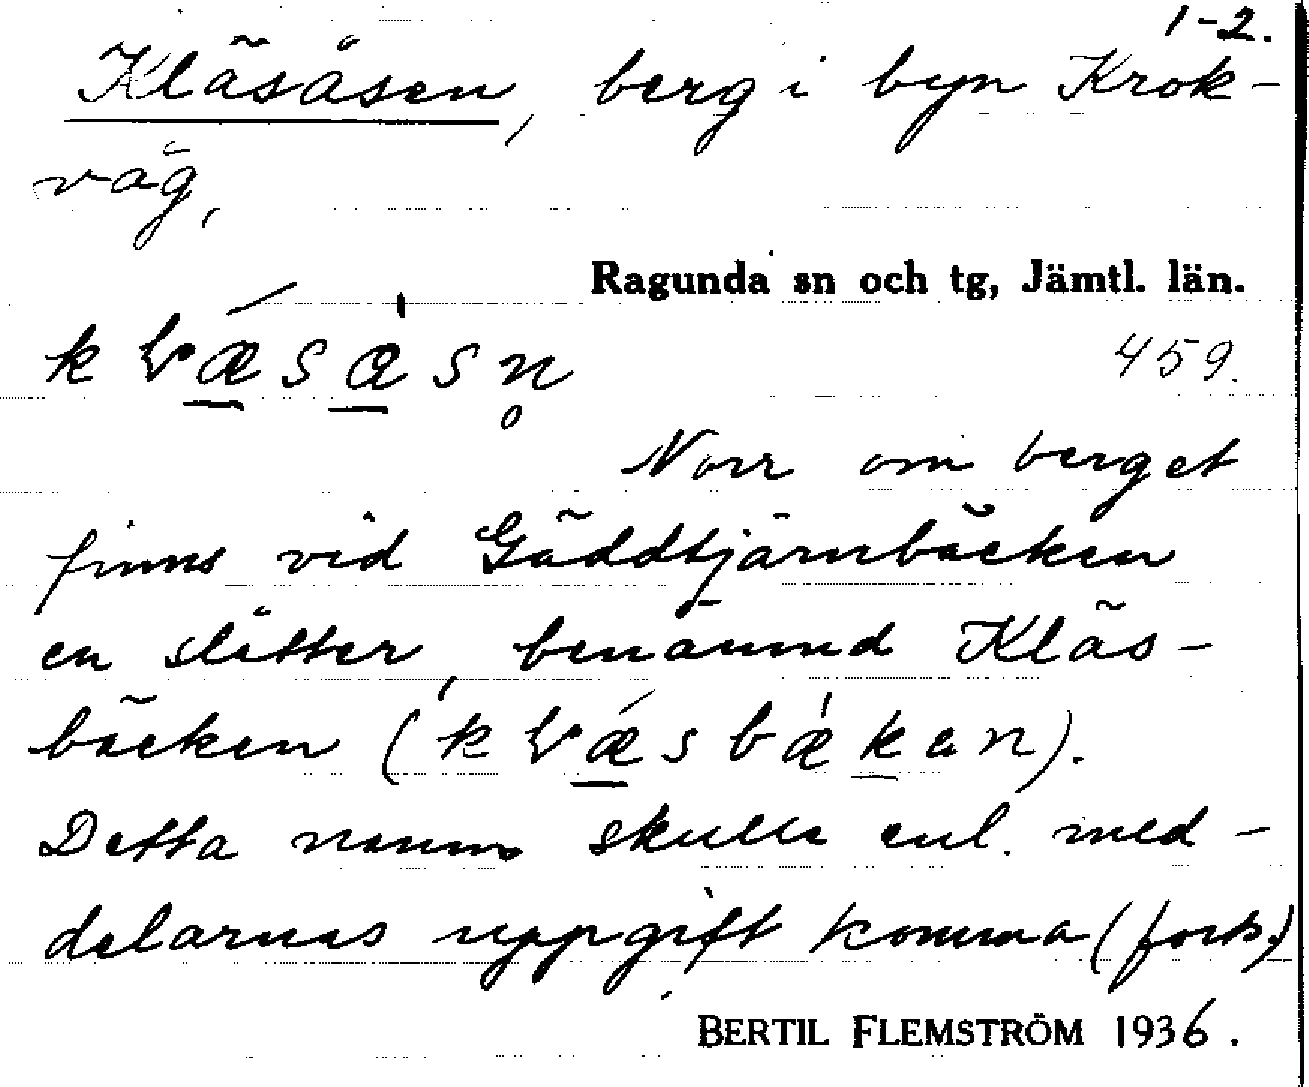 1-2.
Kläsåsen, berg i byn Krok-
våg,
Ragunda sn och tg, Jämtl. län.
459.
Norr om berget
finns vid Gäddtjärnbäcken
en slåtter, benämnd Kläs-
bäcken
Detta namn skulle enl. med-
delarnas uppgift komma (forts.)
BERTIL FLEMSTRÖM 1936.